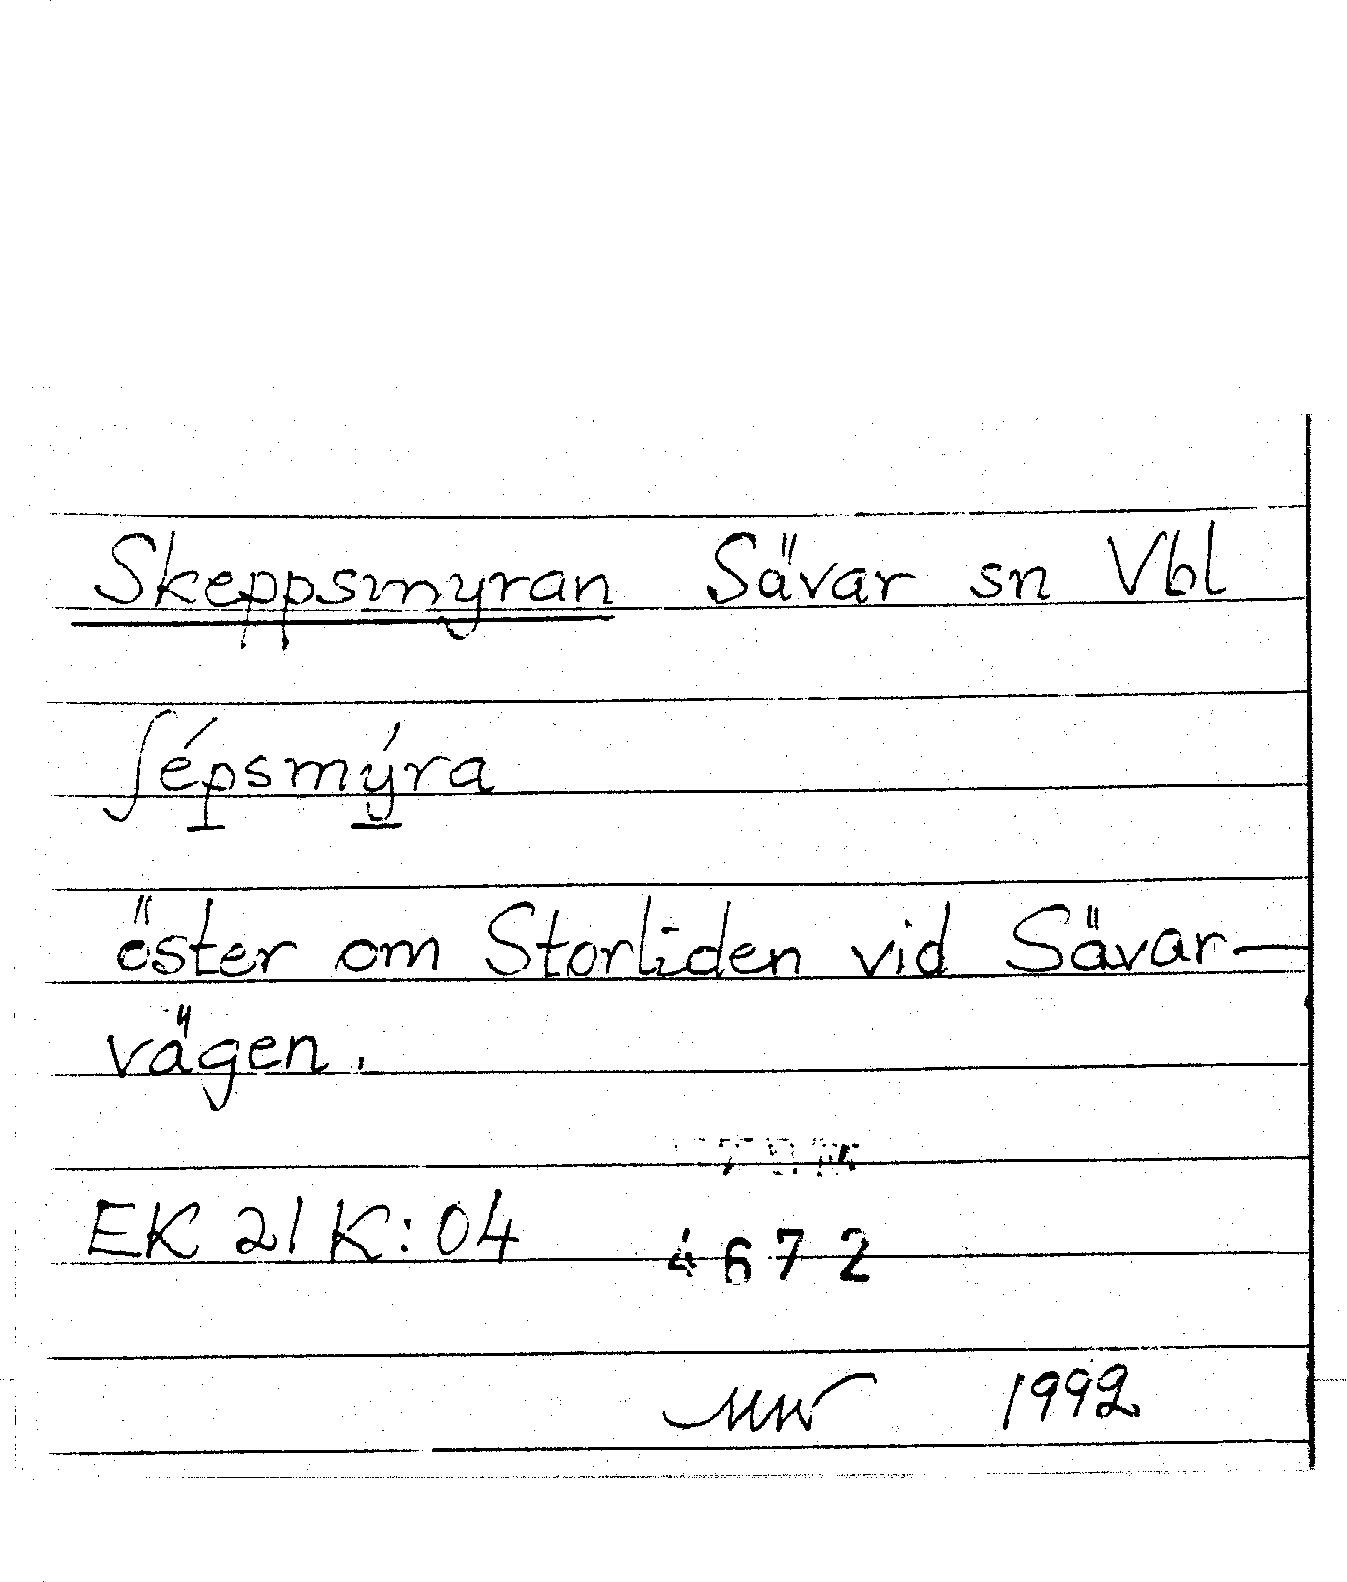 Skeppsmyran Sävar sn Vbl
ʃép̲smý̲ra
öster om Storliden vid Sävar-
vägen.
EK 21 K:04 4672
MW 1992